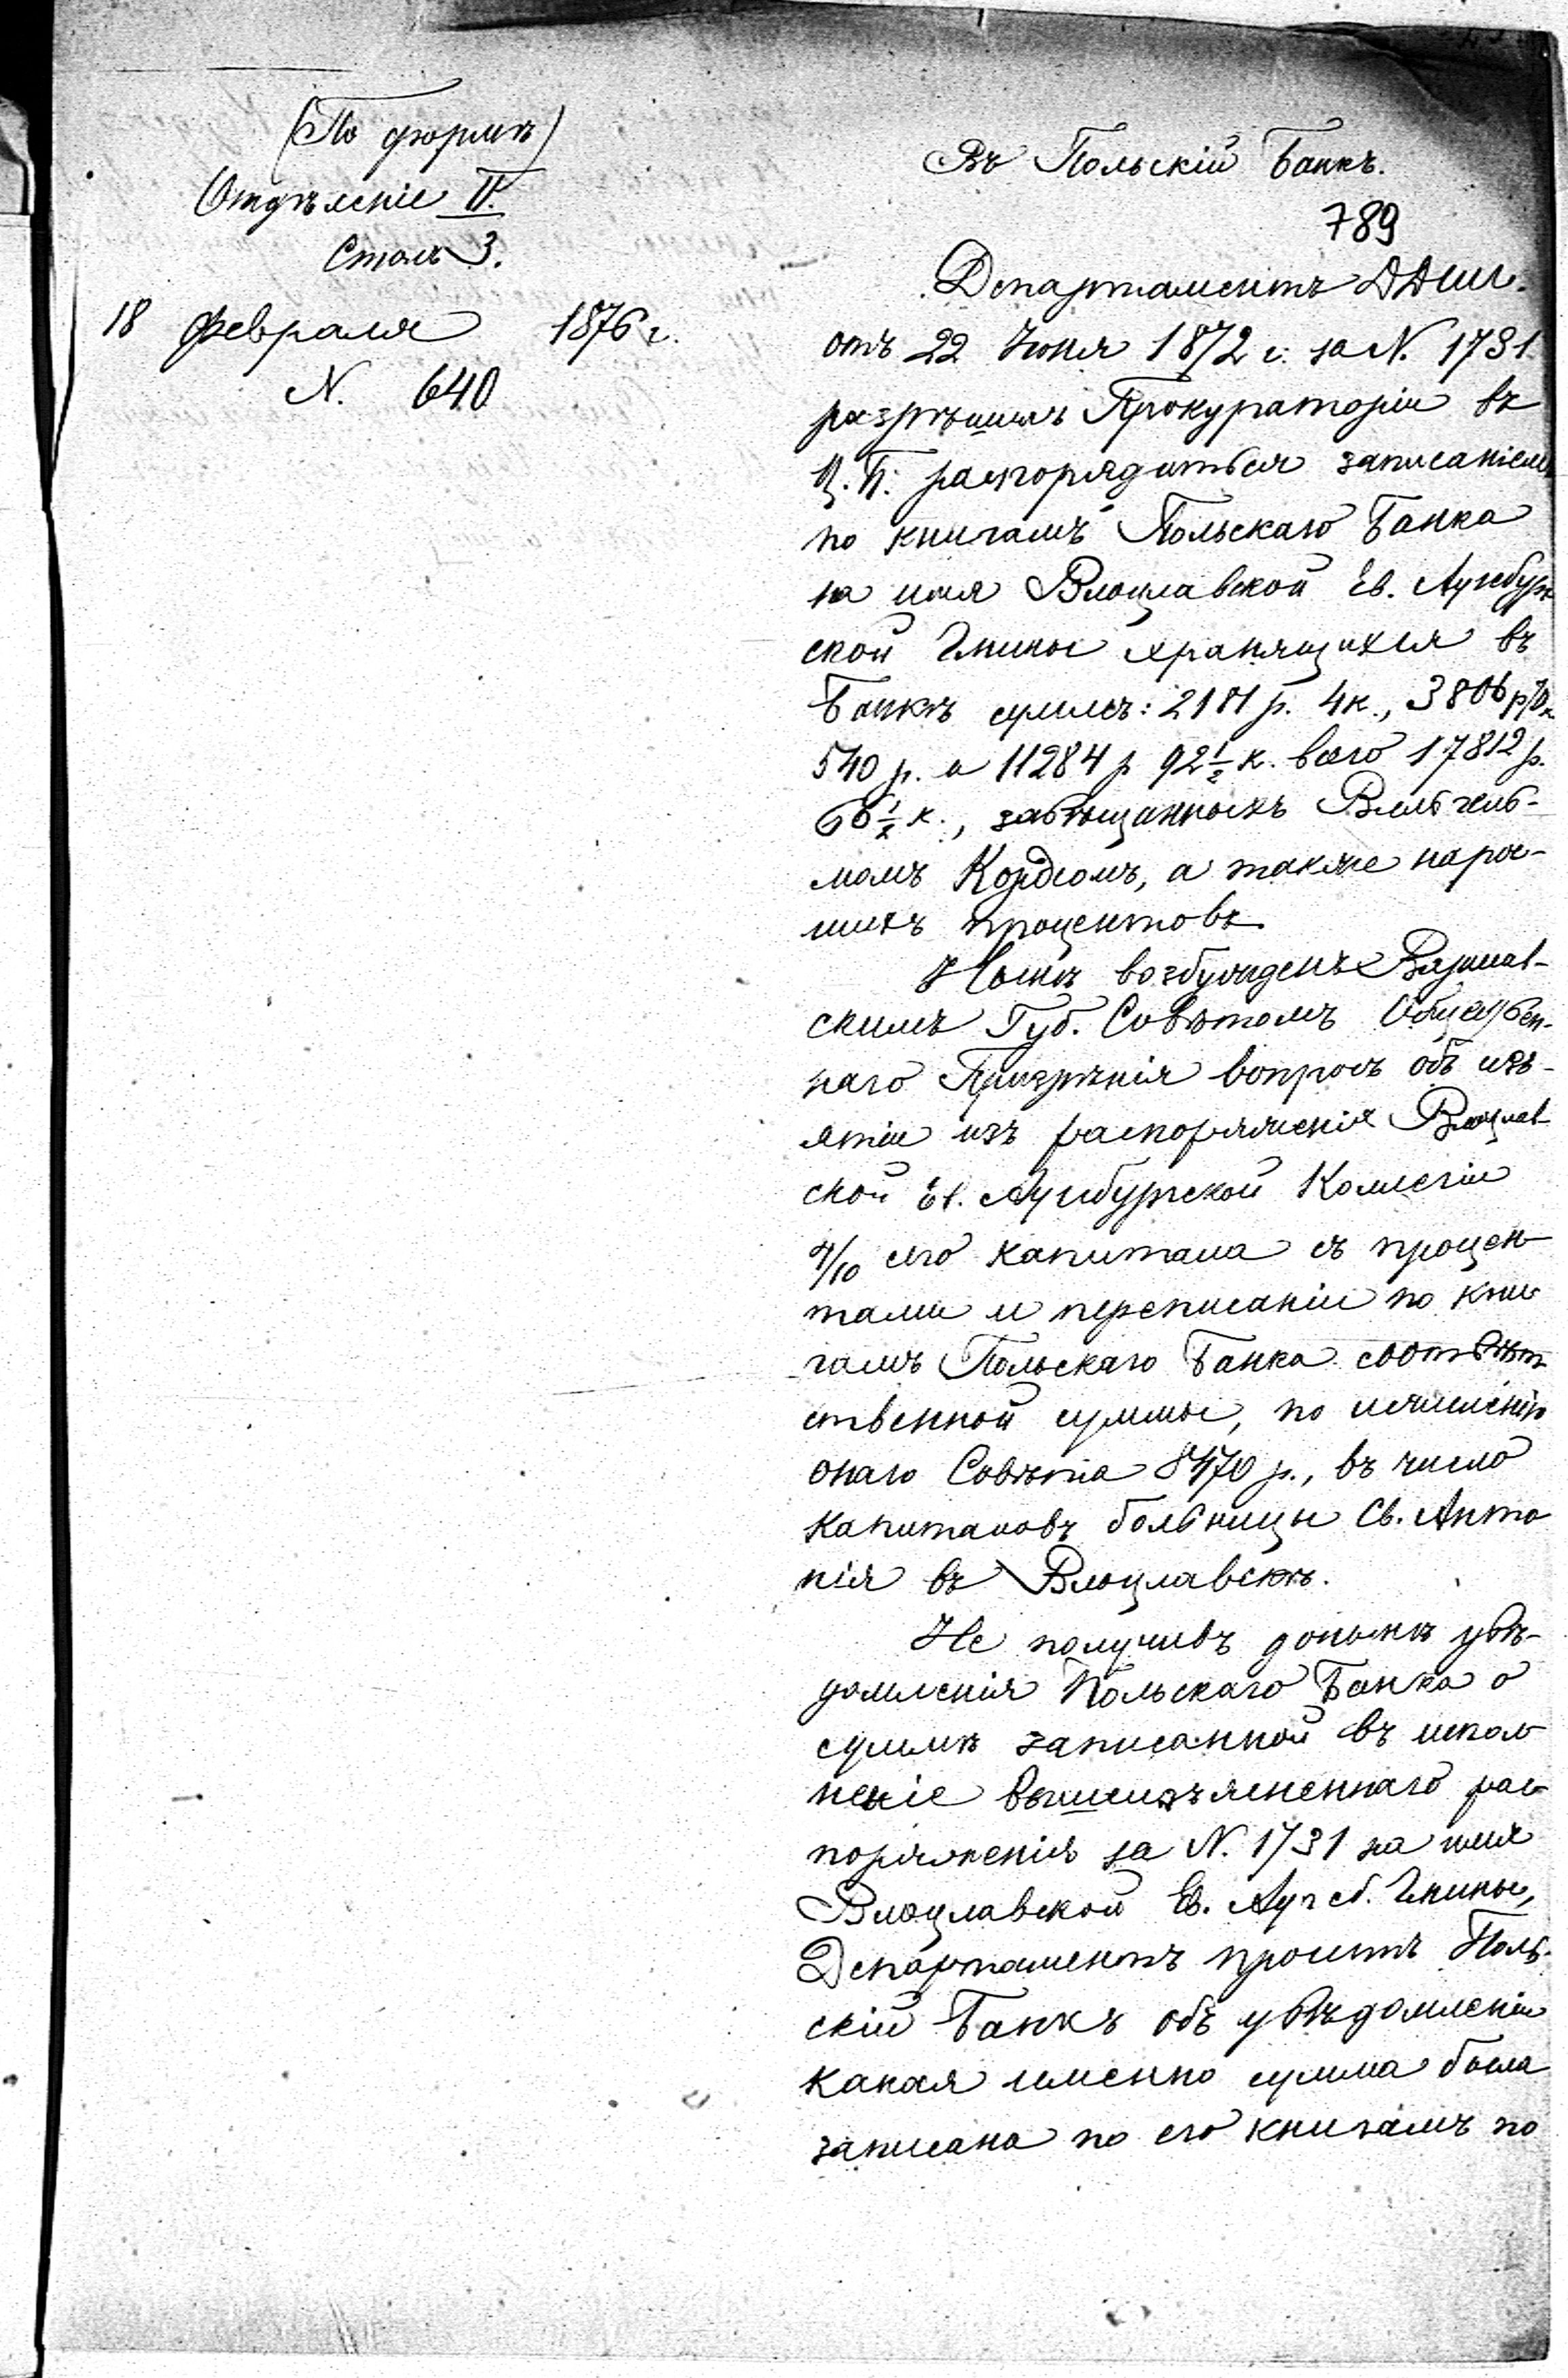 (По формѣ)
Отдѣленіе II.
Столъ 3.
18 февраля 1876 г.
N. 640
Въ Польскій Банкъ.
789
Департаментъ ДДИИ.
отъ 22 Іюня 1872 г. за N. 1731
разрѣшилъ Прокураторіи въ
Ц. П. распорядиться записаніемъ
по книгамъ Польскаго Банка
на имя Влоцлавской Ев. Аугсбург
ской Гмины хранящихся въ
Банкѣ суммъ: 2181 р. 4 к., 3806 р.
540 р. и 11284 р 92½ к. всего 17812 р.
66½ к., завѣщанныхъ Вильгель-
момъ Кордомъ, а также нарос-
шихъ процентовъ.
Нынѣ возбужденъ Варшав-
скимъ Губ. Совѣтомъ Обществен-
наго Призрѣнія вопросъ объ изъ-
ятіи изъ распоряженія Влоцлав
ской Ев. Аугсбургской Коллегіи
4/10 сего капитала съ процен
тами и переписаніи по кни
гамъ Польскаго Банка соотвѣт
ственной суммы, по исчисленію
онаго Совѣта 8470 р., въ число
капиталовъ больницы Св. Анто
нія въ Влоцлавскѣ.
Не получивъ донынѣ увѣ-
домленія Польскаго Банка о
суммѣ записанной въ испол
неніе вышеизъясненнаго рас
поряженія за N. 1731 на имя
Влоцлавской Ев. Аугсб. Гмины,
Департаментъ проситъ Поль-
скій Банкъ объ увѣдомленіи
какая именно сумма была
записана по его книгамъ по